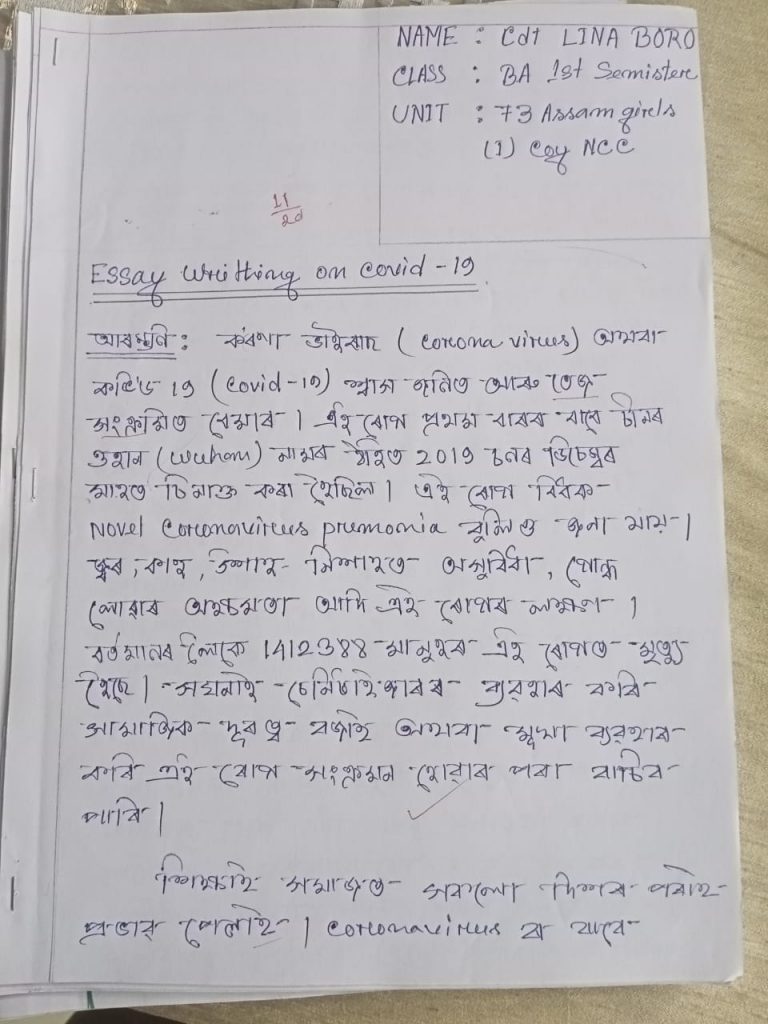 NAME : Cdt LINA BORO
CLASS : BA 1st Semister
UNIT : 73 Assam girls
(I) Coy NCC
11/20
Essay Writthing on Covid-19
আৰম্ভণি : কৰণা ভাইৰাছ (Corona virus) অথবা
কভিড 19 (Covid-19) শ্বাস জনিত আৰু তেজ
সংক্ৰমিত বেমাৰ। এই ৰোগ প্ৰথম বাৰৰ বাবে চীনৰ
ওহান (Wuhan) নামৰ ঠাইত 2019 চনৰ ডিচেম্বৰ
মাহত চিনাক্ত কৰা হৈছিল। এই ৰোগ বিধক
Novel Coronavirus pneumonia বুলিও জনা যায়।
জ্বৰ, কাহ, উশাহ নিশাহত অসুবিধা, গোন্ধ
লোৱাৰ অক্ষমতা আদি এই ৰোগৰ লক্ষণ।
বৰ্তমানৰ লৈকে 1412388 মানুহৰ এই ৰোগত মৃত্যু
হৈছে। সঘনাই চেনিটাইজাৰৰ ব্যৱহাৰ কৰি
সামাজিক দূৰত্ব বজাই অথবা মুখা ব্যৱহাৰ
কৰি এই ৰোগ সংক্ৰমন হোৱাৰ পৰা বাচিব
পাৰি।
শিক্ষাই সমাজত সকলো দিশৰ পৰাই
প্ৰভাৱ পেলাই। Coronavirus ৰ বাবে